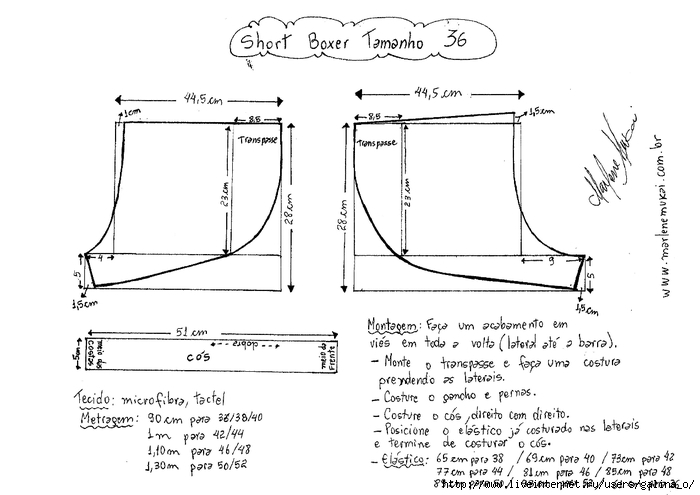 Short Boxer Tamanho 36
44,5 cm
1cm
8,5
Transpasse
23 cm
28 cm
4
5
1,5cm
44,5 cm
1,5cm
8,5
Transpasse
28 cm
23 cm
9
5
1,5cm
www.marlenemukai.com.br
51 cm
5cm
meio das costas
cós
dobra
meio da frente
Tecido: microfibra, tactel
Metragem: 90 cm para 36/38/40
1 m para 42/44
1,10m para 46/48
1,30m para 50/52
Montagem: Faça um acabamento em
viés em toda a volta (lateral até a barra).
- Monte o transpasse e faça uma costura
prendendo as laterais.
- Costure o gancho e pernas.
- Costure o cós, direito com direito.
- Posicione o elástico já costurado nas laterais
e termine de costurar o cós.
- Elástico: 65 cm para 38 / 69 cm para 40 / 73cm para 42
77 cm para 44 / 81 cm para 46 / 85 cm para 48
http://www.liveinternet.ru/users/galina_o/